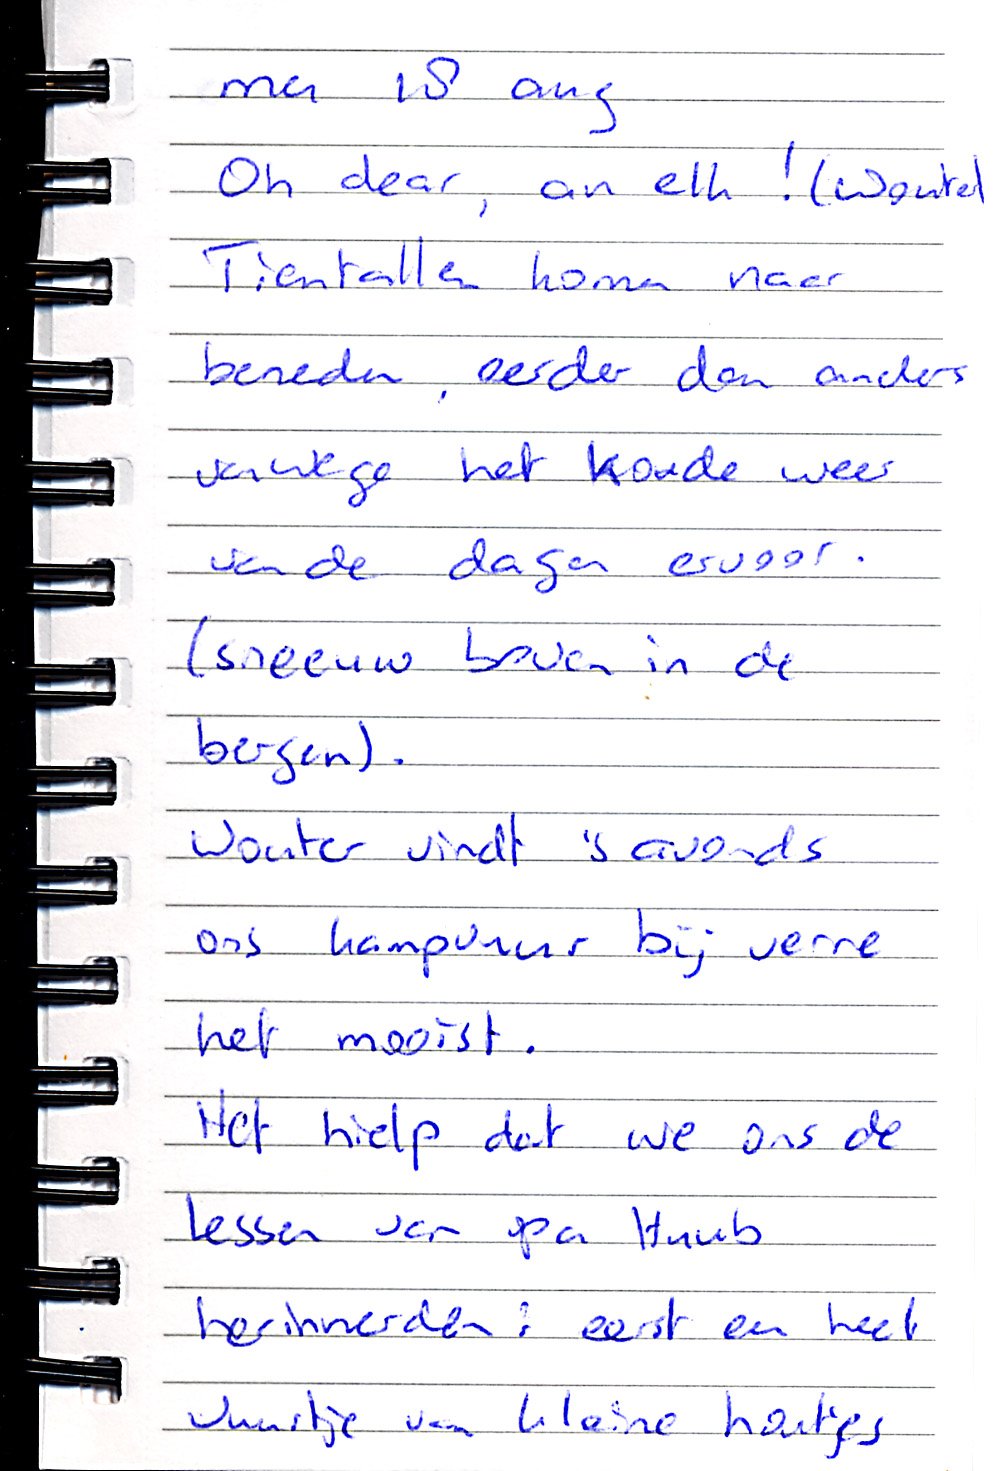 maa 18 aug
Oh dear, an elk! (Wouter
Tientallen komen naar
beneden, eerder dan anders
vanwege het koude weer
van de dagen ervoor.
(sneeuw boven in de
bergen).
Wouter vindt 's avonds
ons kampvuur bij verre
het mooist.
Het hielp dat we ons de
lessen van opa Huub
herinnerden: eerst een heel
vuurtje van kleine houtjes